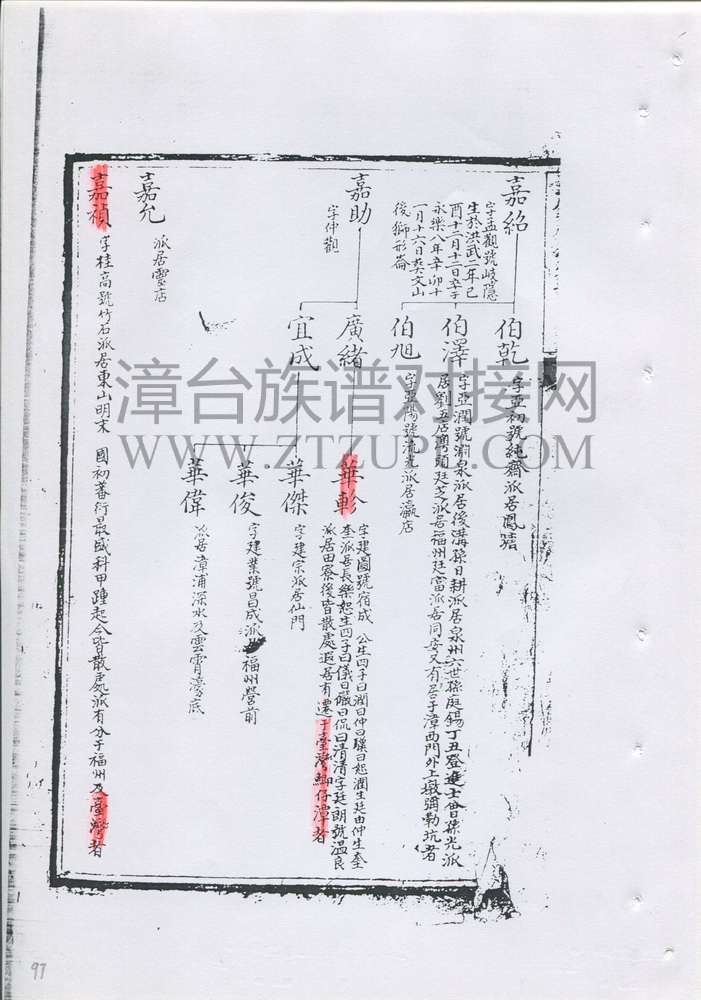 嘉紹
字孟觀號岐隱
生於洪武二年己
酉十二月十二日卒于
永樂八年辛卯十
一月十六日葬文山
後獅形崙
伯乾
字亞初號純齋派居鳳
伯澤
字亞潤號淵泉派居後溝孫日耕派居泉州六世孫庭錫丁丑登進士曾孫光派
居劉五店灣頭廷芝派居福州廷富派居同安又有居于漳西門外上墩彌勒坑者
伯旭
字亞陽號流光派居瀛店
嘉助
字仲觀
廣緒
華軫
字建圖號宿成 公生四子曰潤曰仲曰驥曰恕潤生廷由仲生奎
奎派居長樂恕生四子曰儀曰儼曰侃曰清清字廷朗號溫良
派居田寮後皆散處遐居有遷于臺灣鯽仔潭者
宜成
華傑
字建宗派居仙門
華俊
字建業號昌成派 福州營前
華偉
派居漳浦深水及雲霄濠底
嘉允
派居靈店
嘉禎
字桂高號竹石派居東山明末 國初蕃衍最盛科甲踵起今皆散處派有分于福州及臺灣者
漳台族谱对接网
WWW.ZTZUPU.COM
97